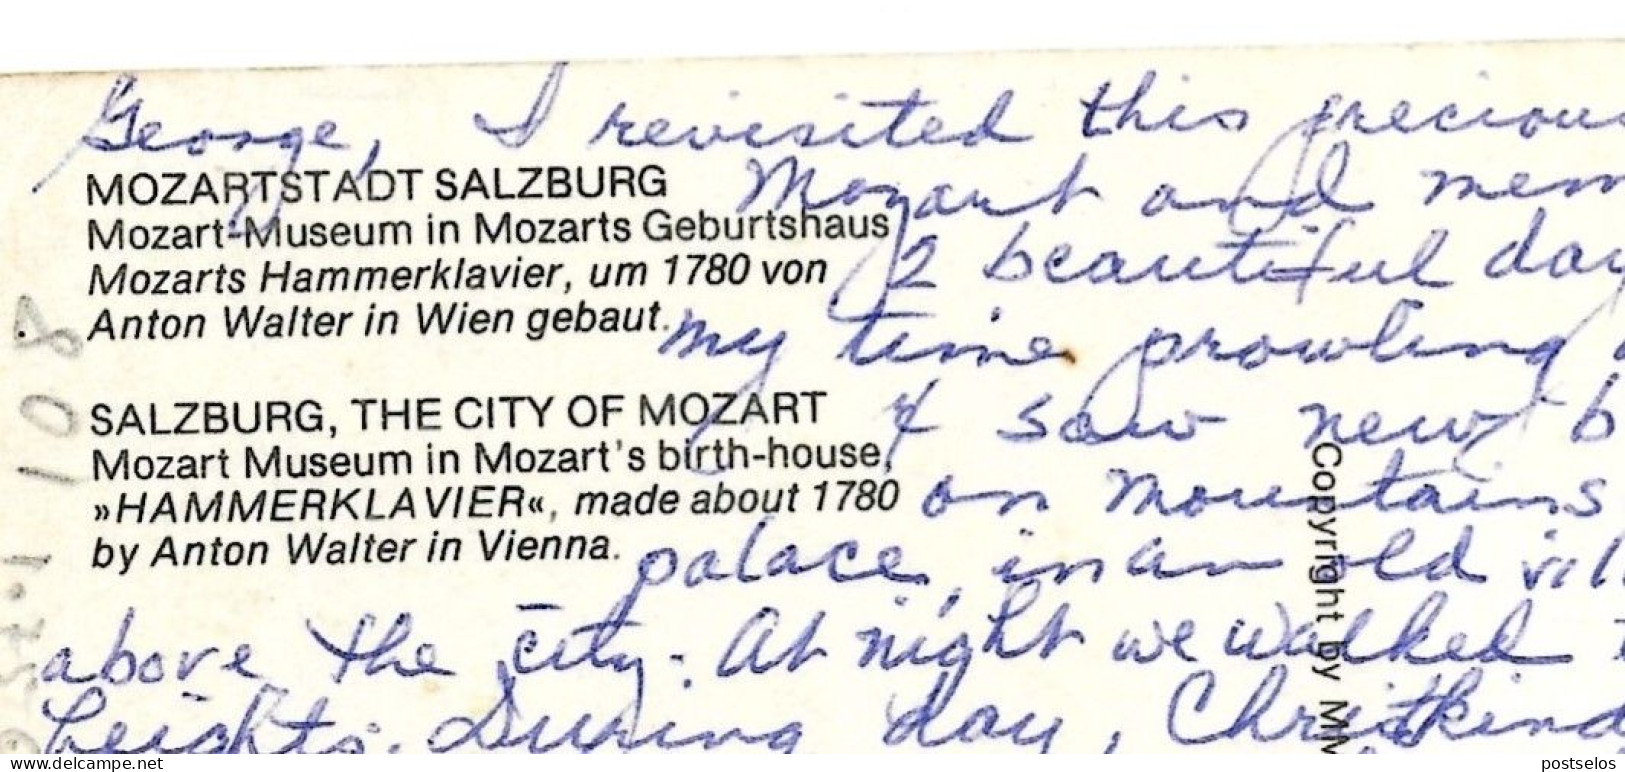 George, I revisited this precious
MOZARTSTADT SALZBURG
Mozart and mem
Mozart-Museum in Mozarts Geburtshaus
2 beautiful day
Mozarts Hammerklavier, um 1780 von
Anton Walter in Wien gebaut.
my time prowling
SALZBURG, THE CITY OF MOZART
& saw new b
Mozart Museum in Mozart's birth-house,
»HAMMERKLAVIER«, made about 1780
on mountains
by Anton Walter in Vienna.
palace, in an old vill
above the city. At night we walked t
heights. During day, Christkind
Copyright by MW
108
www.delcampe.net
postselos